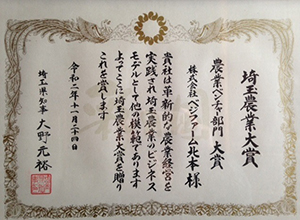 埼玉農業大賞
農業ベンチャー部門 大賞
株式会社ベジファーム北本 様
貴社は革新的な農業経営を
実践され埼玉農業のビジネス
モデルとして他の模範であります
よってここに埼玉農業大賞を贈り
これを賞します
令和二年十一月二十四日
埼玉県知事 大野元裕